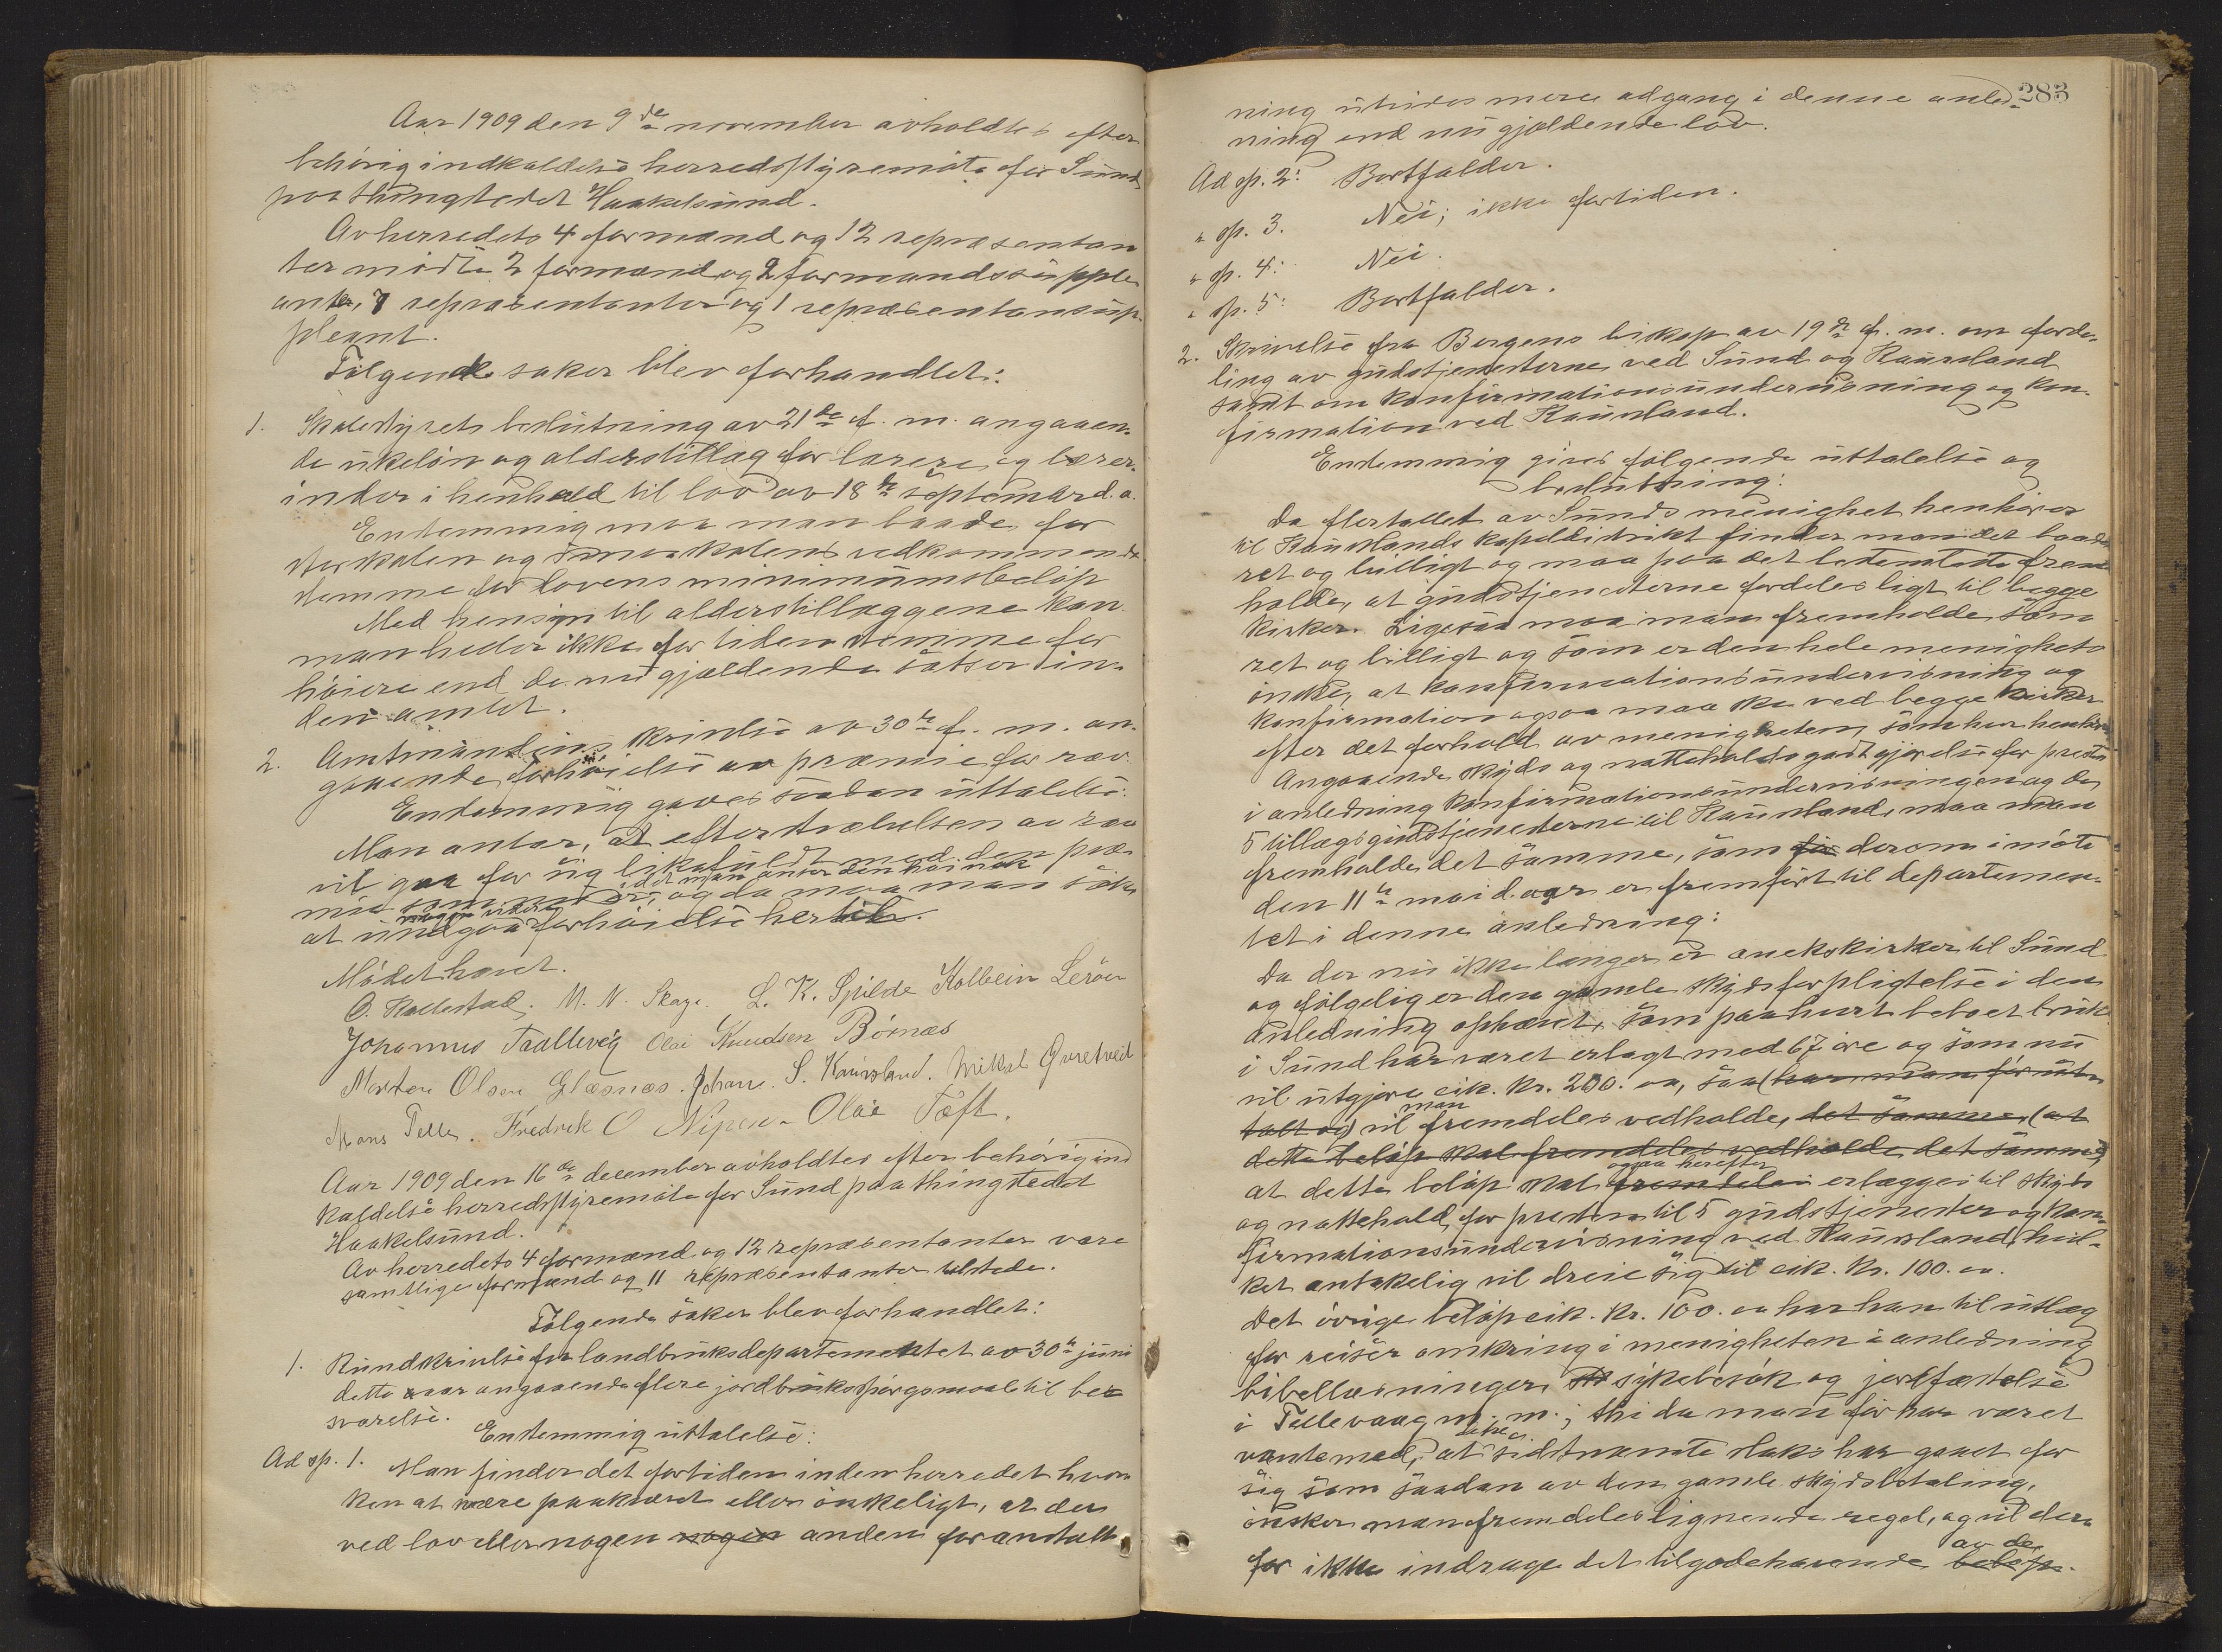 Aar 1909 den 9de november avholdtes efter
behörig indkaldelse herredsstyremöte for Sund
paa thingstedet Haakelsund.
Av herredets 4 formænd og 12 repræsentan
ter mödte 2 formænd og 2 formandssupple
anter, 7 repræsentanter og 1 repræsentansup-
pleant.
Fölgende saker blev forhandlet:
1. Skolestyrets beslutning av 21de f. m. angaaen-
de ukelön og alderstillæg for lærere og lærer-
inder i henhold til lov av 18de septembr d. a.
Enstemmig maa man baade for
storskolen og smaaskolens vedkommende
stemme for lovens minimumsbelöp
Med hensyn til alderstillæggene kan
man heller ikke for tiden stemme for
höiere end de nu gjældende satser in-
den amtet.
2. Amtmandens skrivelse av 30te f. m. an-
gaaende forhöielse av præmie for ræv.
Enstemmig gaves saadan uttalelse:
Man antar, at efterstræbelsen av ræv
vil gaa for sig likefuldt med den præ-
mie som nu er, idet man anser den höi nok og da maa man söke
at undgaa nogen videre forhöielse hertil.
Mödet hævet.
O. Kallestad. M. N. Skage. L. K. Spilde Kolbein Leröen
Johannes Taalleveg Olai Knudsen Börnæs
Morten Olsen Glæsnæs. Johan S. Kausland. Mikal Qvretveit
Mons Telle. Fredrik O Nipen. Olai Toft.
Aar 1909 den 16de december avholdtes efter behörig ind
kaldelse herredsstyremöte for Sund paa thingstedet
Haakelsund.
Av herredets 4 formænd og 12 repræsentanter vare
samtlige formænd og 11 repræsentanter tilstede.
Fölgende saker blev forhandlet:
1. Rundskrivelse fra landbruksdepartementet av 30te juni
dette aar angaaende flere jordbruksspörgsmaal til be-
svarelse.
Enstemmig uttalelse:
Ad sp. 1. Man finder det for tiden inden herredet hver
ken at være paakrævet eller önskeligt, at der
ved lov eller nogen nogen anden foranstalt
283
ning utvides mere adgang i denne anled-
ning end nu gjældende lov.
Ad sp. 2: Bortfalder.
" sp. 3. Nei; ikke for tiden.
" sp. 4: Nei.
" sp. 5: Bortfalder.
2. Skrivelse fra Bergens biskop av 19de f. m. om forde-
ling av gudstjenesterne ved Sund og Kausland
samt om konfirmationsundervisning og kon-
firmation ved Kausland.
Enstemmig gives fölgende uttalelse og
beslutning:
Da flertallet av Sunds menighet henhörer
til Kauslands kapeldistrikt finder man det baade
ret og billigt og maa paa det bestemteste frem
holde, at gudstjenesterne fordeles ligt til begge
kirker. Ligesaa maa man fremholde som
ret og billigt og som er den hele menighets
önske, at konfirmationsundervisning og
konfirmation ogsaa maa ske ved begge kirker
efter det forhold av menigheten, som her henhörer
Angaaende skyds og natteholdsgodtgjörelse for presten
i anledning konfirmationsundervisningen og de
5 tillægsgudstjenesterne til Kausland, maa man
fremholde det samme, som för derom i möte
den 11te mai d. aar er fremfört til departemen-
tet i denne anledning:
Da der nu ikke længer er anekskirker til Sund
og fölgelig er den gamle skydsforpligtelse i den
anledning ophævet, som paa hvert beboet bruk
i Sund har været erlagt med 67 öre og som nu
vil utgjöre cik. Kr. 200.oo, saa (har man för ut-
talt og) vil man fremdeles vedholde, det samme, (at
dette belöp skal fremdeles vedholde det samme,
at dette belöp skal fremdeles ogsaa herefter erlægges til skyds
og nattehold for presten til 5 gudstjenester og kon-
firmationsundervisning ved Kausland, hvil-
ket antakelig vil dreie sig til cik. Kr. 100.oo.
Det övrige belöp cik. Kr. 100.oo har han til utlæg
for reiser omkring i menigheten i anledning
bibellæsninger, sykebesök og jordfæstelse
i Tellevaag m. m.; thi da man för har været
vante med, at sidstnævnte slaks har gaaet for
sig som saadan av den gamle skydsbetaling,
önsker man fremdeles lignende regel, og vil der-
for ikke indrage det tilgodehavende belöp av de